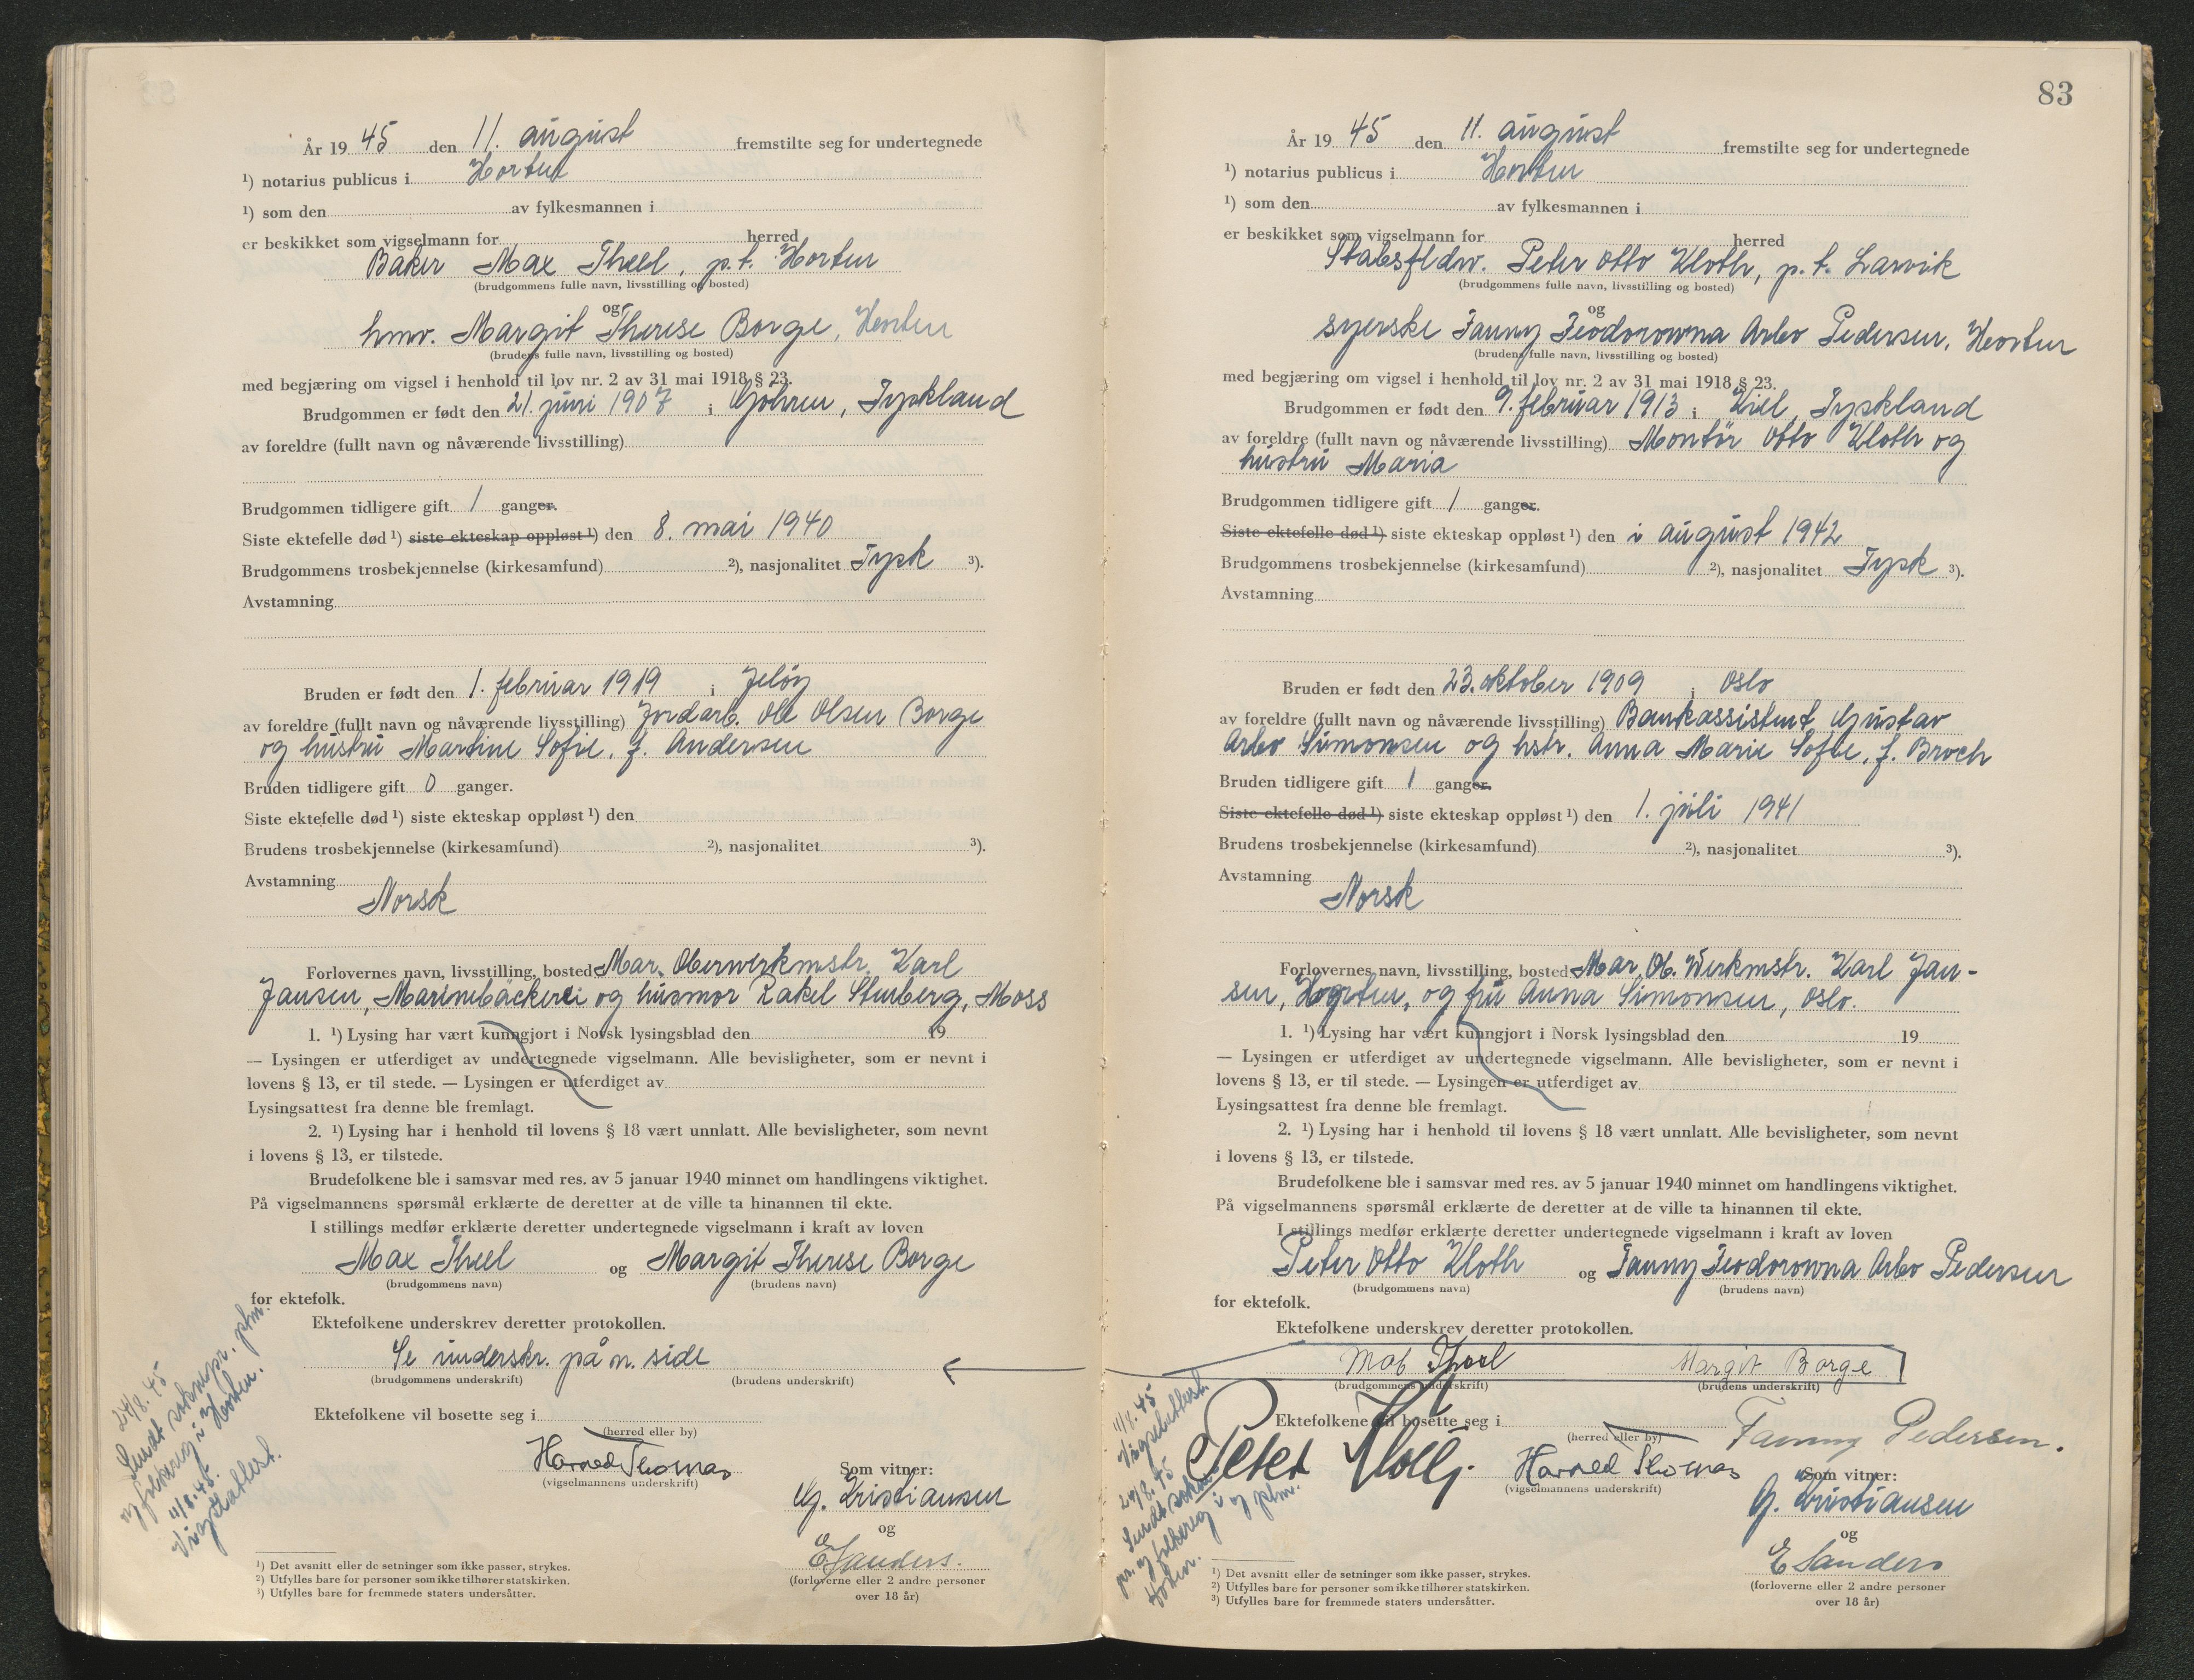 År 19 45 den 11. august fremstilte seg for undertegnede
¹) notarius publicus i Horten
¹) som den av fylkesmannen i
er beskikket som vigselmann for herred
Baker Max Theel, p.t. Horten
(brudgommens fulle navn, livsstilling og bosted)
og
hmv. Margit Therese Borge, Horten
(brudens fulle navn, livsstilling og bosted)
med begjæring om vigsel i henhold til lov nr. 2 av 31 mai 1918 § 23.
Brudgommen er født den 21. juni 1907 i Göhren, Tyskland
av foreldre (fullt navn og nåværende livsstilling)
Brudgommen tidligere gift 1 ganger.
Siste ektefelle død ¹) siste ekteskap oppløst ¹) den 8. mai 1940
Brudgommens trosbekjennelse (kirkesamfund) ²), nasjonalitet Tysk ³).
Avstamning
Bruden er født den 1. februar 1919 i Jeløy
av foreldre (fullt navn og nåværende livsstilling) Jordarb. Ole Olsen Borge
og hustru Martine Sofie, f. Andersen
Bruden tidligere gift 0 ganger.
Siste ektefelle død ¹) siste ekteskap oppløst ¹) den
Brudens trosbekjennelse (kirkesamfund) ²), nasjonalitet ³).
Avstamning
Norsk
Forlovernes navn, livsstilling, bosted Mar. Oberwerkmstr. Karl
Jansen, Marinebäckerei og husmor Rakel Stenberg, Moss
1. ¹) Lysing har vært kunngjort i Norsk lysingsblad den 19
— Lysingen er utferdiget av undertegnede vigselmann. Alle bevisligheter, som er nevnt i
lovens § 13, er til stede. — Lysingen er utferdiget av
Lysingsattest fra denne ble fremlagt.
2. ¹) Lysing har i henhold til lovens § 18 vært unnlatt. Alle bevisligheter, som nevnt
i lovens § 13, er tilstede.
Brudefolkene ble i samsvar med res. av 5 januar 1940 minnet om handlingens viktighet.
På vigselmannens spørsmål erklærte de deretter at de ville ta hinannen til ekte.
I stillings medfør erklærte deretter undertegnede vigselmann i kraft av loven
Max Theel og Margit Therese Borge
(brudgommens navn) (brudens navn)
for ektefolk.
Ektefolkene underskrev deretter protokollen.
Se underskr. på n. side
(brudgommens underskrift) (brudens underskrift)
Ektefolkene vil bosette seg i
(herred eller by)
Harald Thomas
(vigselmannens underskrift)
Som vitner:
G. Kristiansen
og
E Sanders.
(forloverne eller 2 andre personer
over 18 år)
24/8.45
Sendt soknepr. ptm.
og folkereg i Horten.
11/8.45.
Vigselattest.
¹) Det avsnitt eller de setninger som ikke passer, strykes.
²) Utfylles bare for personer som ikke tilhører statskirken.
³) Utfylles bare for fremmede staters undersåtter.
83
År 19 45 den 11. august fremstilte seg for undertegnede
¹) notarius publicus i Horten
¹) som den av fylkesmannen i
er beskikket som vigselmann for herred
Stabsfldw. Peter Otto Kloth, p.t. Larvik
(brudgommens fulle navn, livsstilling og bosted)
og
syerske Fanny Feodorowna Arbo Pedersen, Horten
(brudens fulle navn, livsstilling og bosted)
med begjæring om vigsel i henhold til lov nr. 2 av 31 mai 1918 § 23.
Brudgommen er født den 9. februar 1913 i Kiel, Tyskland
av foreldre (fullt navn og nåværende livsstilling) Montör Otto Kloth og
hustru Maria
Brudgommen tidligere gift 1 ganger.
Siste ektefelle død ¹) siste ekteskap oppløst ¹) den i august 1942
Brudgommens trosbekjennelse (kirkesamfund) ²), nasjonalitet Tysk ³).
Avstamning
Bruden er født den 23. oktober 1909 i Oslo
av foreldre (fullt navn og nåværende livsstilling) Bankassistent Gustav
Arbo Simonsen og hstr. Anna Marie Sofie, f. Broch
Bruden tidligere gift 1 ganger.
Siste ektefelle død ¹) siste ekteskap oppløst ¹) den 1. juli 1941
Brudens trosbekjennelse (kirkesamfund) ²), nasjonalitet ³).
Avstamning
Norsk
Forlovernes navn, livsstilling, bosted Mar. Ob. Werkmstr. Karl Jan-
sen, Horten, og fru Anna Simonsen, Oslo.
1. ¹) Lysing har vært kunngjort i Norsk lysingsblad den 19
— Lysingen er utferdiget av undertegnede vigselmann. Alle bevisligheter, som er nevnt i
lovens § 13, er til stede. — Lysingen er utferdiget av
Lysingsattest fra denne ble fremlagt.
2. ¹) Lysing har i henhold til lovens § 18 vært unnlatt. Alle bevisligheter, som nevnt
i lovens § 13, er tilstede.
Brudefolkene ble i samsvar med res. av 5 januar 1940 minnet om handlingens viktighet.
På vigselmannens spørsmål erklærte de deretter at de ville ta hinannen til ekte.
I stillings medfør erklærte deretter undertegnede vigselmann i kraft av loven
Peter Otto Kloth og Fanny Feodorowna Arbo Pedersen
(brudgommens navn) (brudens navn)
for ektefolk.
Ektefolkene underskrev deretter protokollen.
Max Theel Margit Borge
(brudgommens underskrift) (brudens underskrift)
Ektefolkene vil bosette seg i
(herred eller by)
Peter Kloth Fanny Pedersen.
Harald Thomas
(vigselmannens underskrift)
Som vitner:
G. Kristiansen
og
E Sanders
(forloverne eller 2 andre personer
over 18 år)
11/8.45
Vigselattest.
24/8.45
Sendt sokne
pr. og folkereg i
Horten. ptm.
¹) Det avsnitt eller de setninger som ikke passer, strykes.
²) Utfylles bare for personer som ikke tilhører statskirken.
³) Utfylles bare for fremmede staters undersåtter.